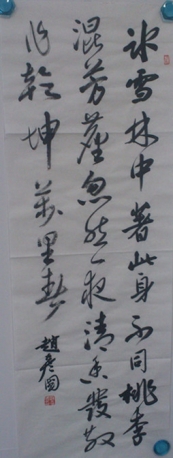 冰雪林中著此身不同桃李
混芳塵忽然一夜清香發散
作乾坤萬里春
趙彦國